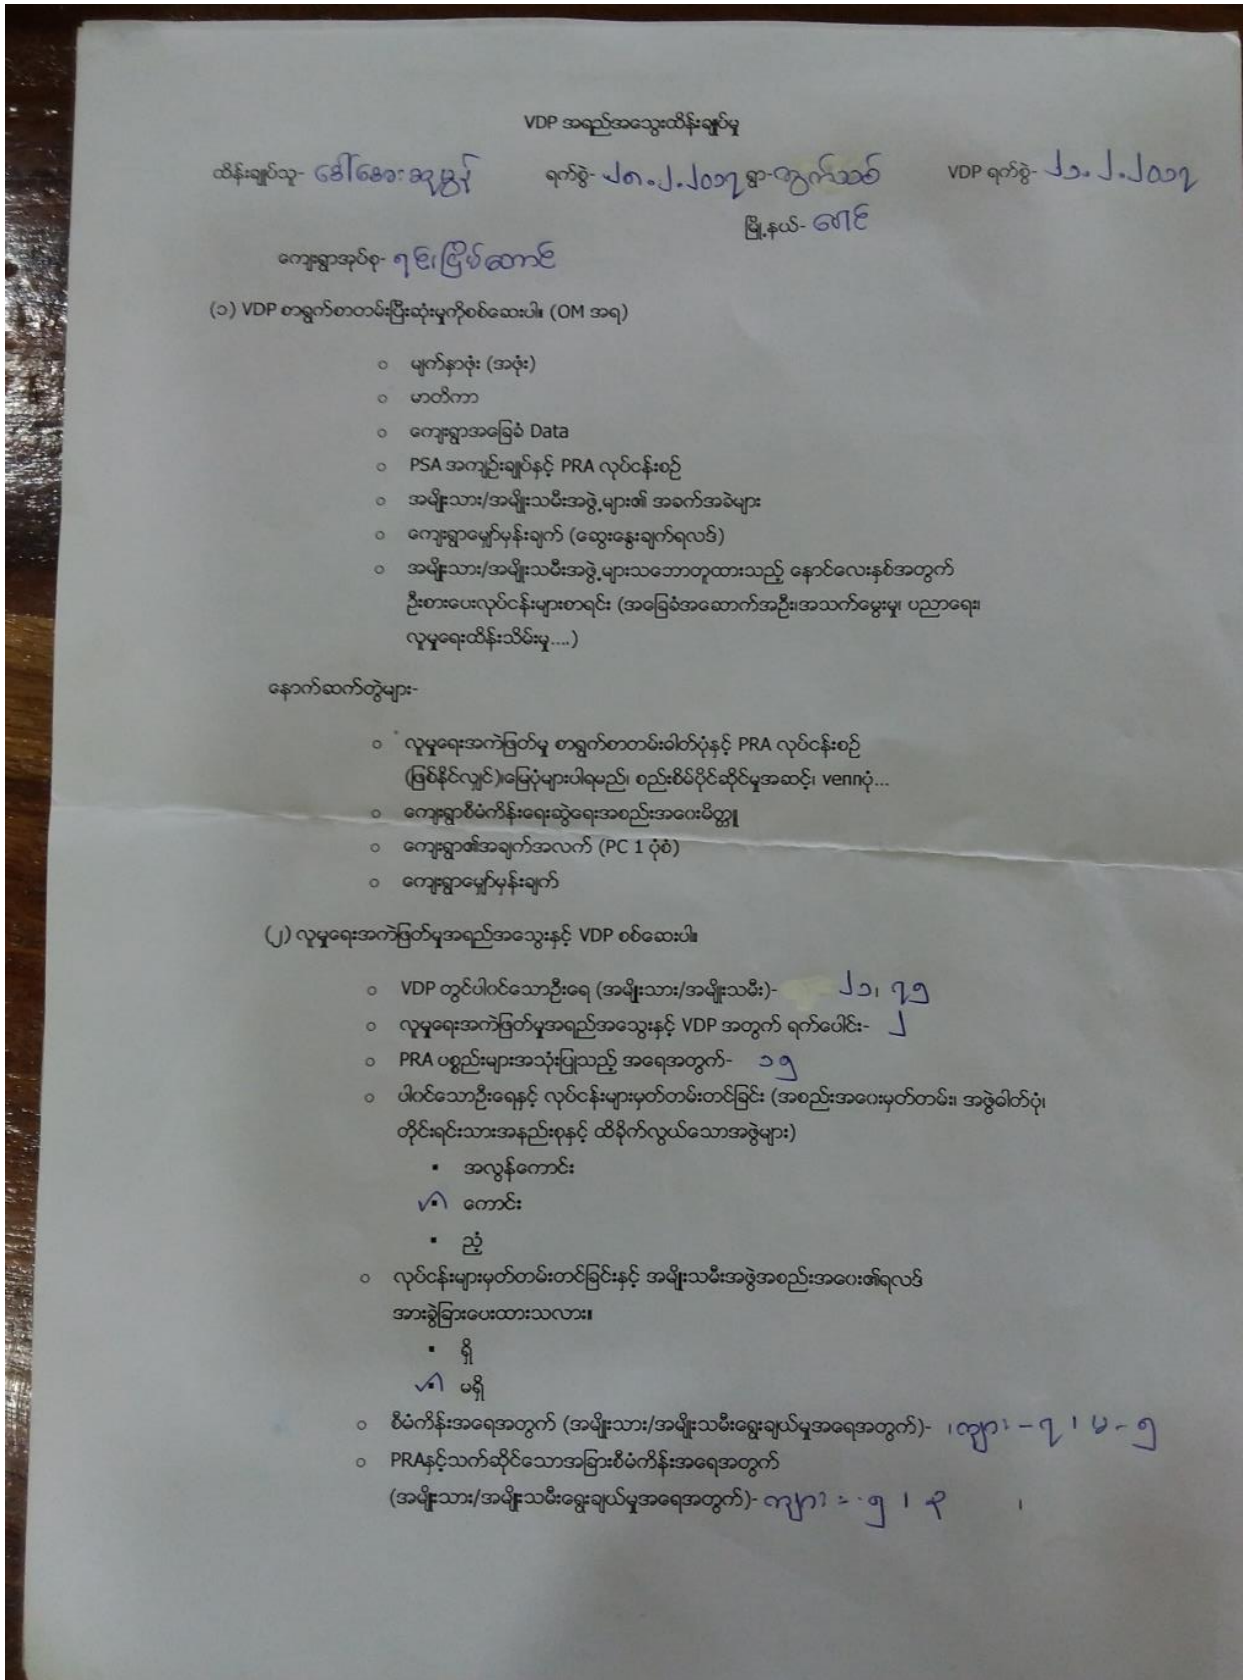 VDP အရည်အသွေးထိန်းချုပ်မှု
ထိန်းချုပ်သူ- ဒေါ်အေးဆုမွန် ရက်စွဲ- ၂၈.၂.၂၀၁၇ ရွာ-ကွက်သစ် VDP ရက်စွဲ- ၂၁.၂.၂၀၁၇
မြို့နယ်- ပေါင်
ကျေးရွာအုပ်စု- ရင်းငြိမ်ဆောင်
(၁) VDP စာရွက်စာတမ်းပြီးဆုံးမှုကိုစစ်ဆေးပါ။ (OM အရ)
○ မျက်နှာဖုံး (အဖုံး)
○ မာတိကာ
○ ကျေးရွာအခြေခံ Data
○ PSA အကျဉ်းချုပ်နှင့် PRA လုပ်ငန်းစဉ်
○ အမျိုးသား/အမျိုးသမီးအဖွဲ့များ၏ အခက်အခဲများ
○ ကျေးရွာမျှော်မှန်းချက် (ဆွေးနွေးချက်ရလဒ်)
○ အမျိုးသား/အမျိုးသမီးအဖွဲ့များသဘောတူထားသည့် နောင်လေးနှစ်အတွက်
ဦးစားပေးလုပ်ငန်းများစာရင်း (အခြေခံအဆောက်အဦး၊အသက်မွေးမှု၊ ပညာရေး၊
လူမှုရေးထိန်းသိမ်းမှု....)
နောက်ဆက်တွဲများ-
○ လူမှုရေးအကဲဖြတ်မှု စာရွက်စာတမ်းဓါတ်ပုံနှင့် PRA လုပ်ငန်းစဉ်
(ဖြစ်နိုင်လျှင်)၊မြေပုံများပါရမည်၊ စည်းစိမ်ပိုင်ဆိုင်မှုအဆင့်၊ vennပုံ...
○ ကျေးရွာစီမံကိန်းရေးဆွဲရေးအစည်းအဝေးမိတ္တူ
○ ကျေးရွာ၏အချက်အလက် (PC 1 ပုံစံ)
○ ကျေးရွာမျှော်မှန်းချက်
(၂) လူမှုရေးအကဲဖြတ်မှုအရည်အသွေးနှင့် VDP စစ်ဆေးပါ။
○ VDP တွင်ပါဝင်သောဦးရေ (အမျိုးသား/အမျိုးသမီး)- ၂၁၊ ၇၅
○ လူမှုရေးအကဲဖြတ်မှုအရည်အသွေးနှင့် VDP အတွက် ရက်ပေါင်း- ၂
○ PRA ပစ္စည်းများအသုံးပြုသည့် အရေအတွက်- ၁၅
○ ပါဝင်သောဦးရေနှင့် လုပ်ငန်းများမှတ်တမ်းတင်ခြင်း (အစည်းအဝေးမှတ်တမ်း၊ အဖွဲ့ဓါတ်ပုံ၊
တိုင်းရင်းသားအနည်းစုနှင့် ထိခိုက်လွယ်သောအဖွဲ့များ)
▪ အလွန်ကောင်း
✓ ကောင်း
▪ ညံ့
○ လုပ်ငန်းများမှတ်တမ်းတင်ခြင်းနှင့် အမျိုးသမီးအဖွဲ့အစည်းအဝေး၏ရလဒ်
အားခွဲခြားပေးထားသလား။
▪ ရှိ
✓ မရှိ
○ စီမံကိန်းအရေအတွက် (အမျိုးသား/အမျိုးသမီးရွေးချယ်မှုအရေအတွက်)- ကျား-၇၊ မ-၅
○ PRAနှင့်သက်ဆိုင်သောအခြားစီမံကိန်းအရေအတွက်
(အမျိုးသား/အမျိုးသမီးရွေးချယ်မှုအရေအတွက်)- ကျား - ၅ ၊ ၃